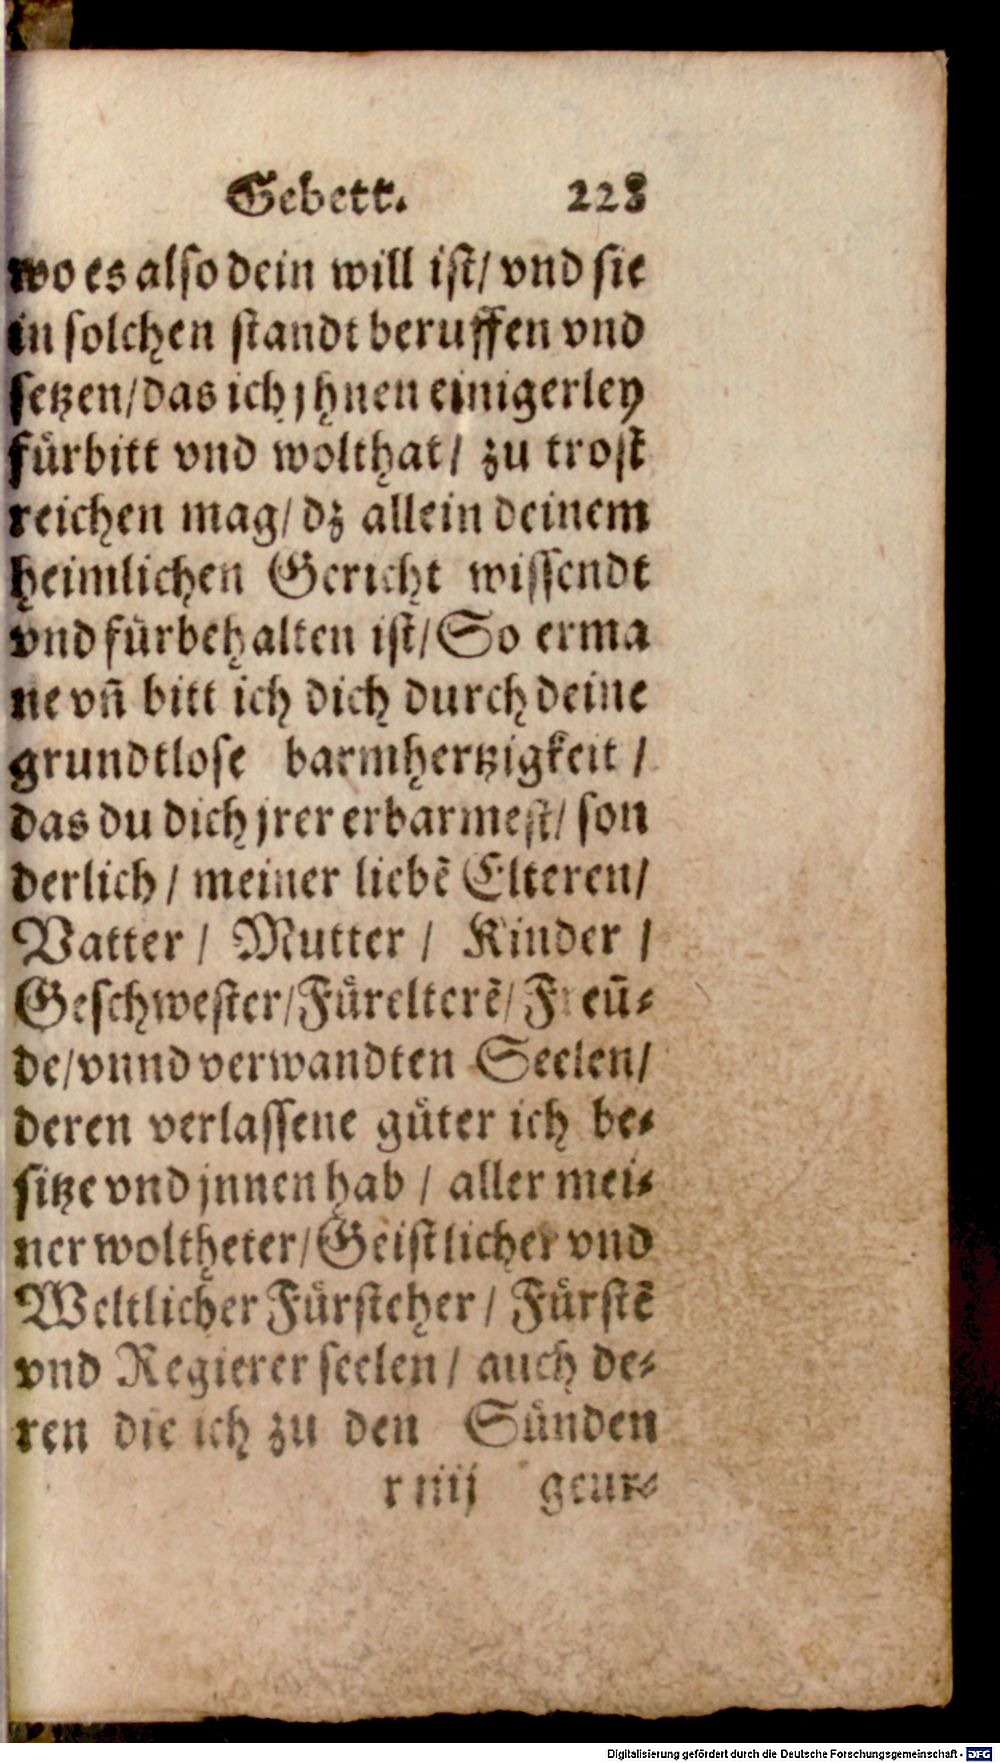 Gebett. 228
wo es also dein will ist/ vnd sie
in solchen standt beruffen vnd
setzen/ das ich jhnen einigerley
fürbitt vnd wolthat/ zu trost
reichen mag/ dz allein deinem
heimlichen Gericht wissendt
vnd fürbehalten ist/ So erma
ne vñ bitt ich dich durch deine
grundtlose barmhertzigkeit /
das du dich jrer erbarmest/ son
derlich / meiner liebẽ Elteren/
Vatter / Mutter / Kinder /
Geschwester/ Fürelterẽ/ Freũ-
de/ vnnd verwandten Seelen/
deren verlassene güter ich be-
sitze vnd jnnen hab / aller mei-
ner woltheter/ Geistlicher vnd
Weltlicher Fürsteher / Fürstẽ
vnd Regierer seelen / auch de-
ren die ich zu den Sünden
r iiij geur-
Digitalisierung gefördert durch die Deutsche Forschungsgemeinschaft - DFG